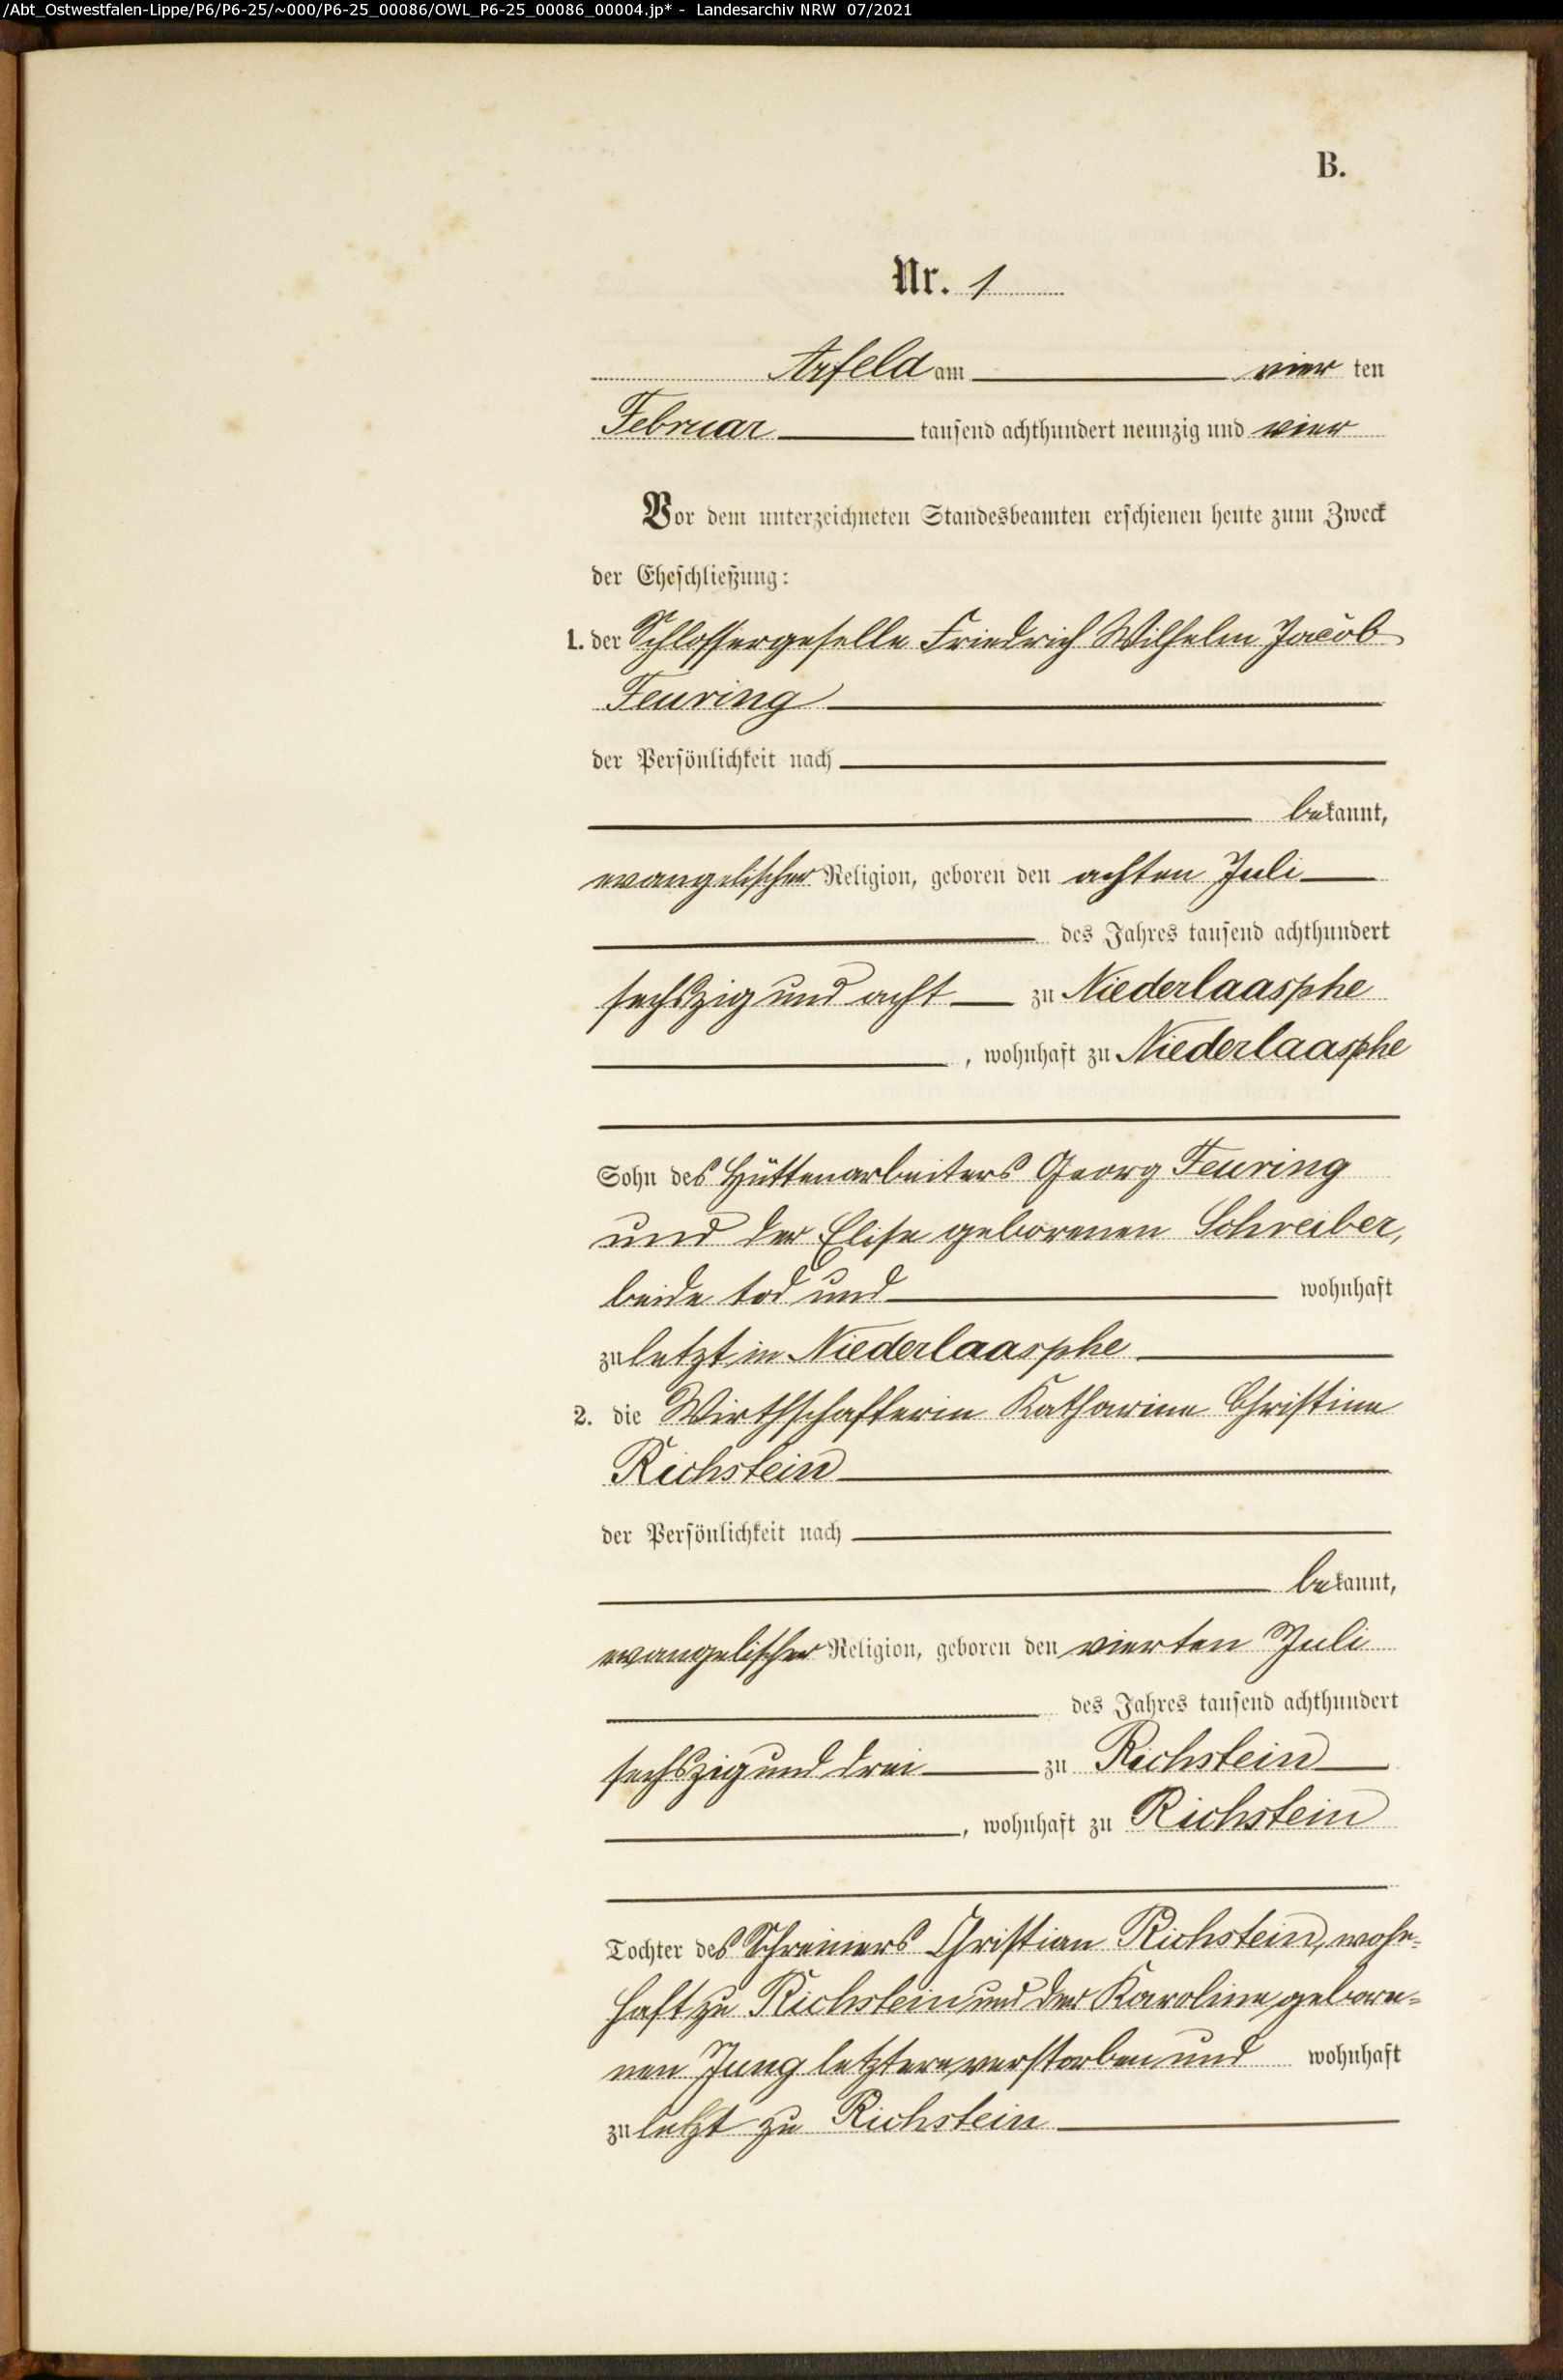 /Abt_Ostwestfalen-Lippe/P6/P6-25/~000/P6-25_00086/OWL_P6-25_00086_00004.jp* - Landesarchiv NRW 07/2021
B.
Nr. 1
Arfeld am vier ten
Februar tausend achthundert neunzig und vier
Vor dem unterzeichneten Standesbeamten erschienen heute zum Zweck
der Eheschließung:
1. der Schlossergeselle Friedrich Wilhelm Jacob
Feuring
der Persönlichkeit nach
bekannt,
evangelischer Religion, geboren den achten Juli
des Jahres tausend achthundert
sechszig und acht zu Niederlaasphe
, wohnhaft zu Niederlaasphe
Sohn des Hüttenarbeiters Georg Feuring
und der Elise geborenen Schreiber,
beide tod und wohnhaft
zuletzt in Niederlaasphe
2. die Wirthschafterin Katharine Christine
Richstein
der Persönlichkeit nach
bekannt,
evangelischer Religion, geboren den vierten Juli
des Jahres tausend achthundert
sechszig und drei zu Richstein
, wohnhaft zu Richstein
Tochter des Schreiners Christian Richstein, wohn-
haft zu Richstein und der Karoline gebore-
nen Jung letztere verstorben und wohnhaft
zuletzt zu Richstein